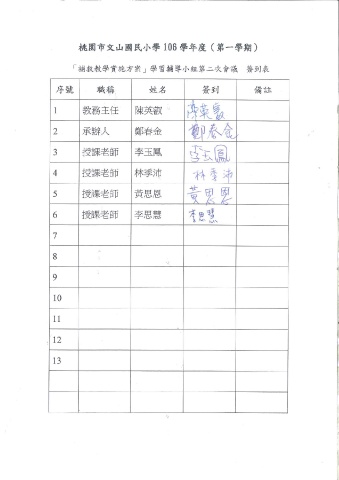 桃園市文山國民小學 106 學年度（第一學期）
「補救教學實施方案」學習輔導小組第二次會議 簽到表
序號 職稱 姓名 簽到 備註
1 教務主任 陳英叡 陳英叡
2 承辦人 鄭春金 鄭春金
3 授課老師 李玉鳳 李玉鳳
4 授課老師 林季沛 林季沛
5 授課老師 黃思恩 黃思恩
6 授課老師 李思慧 李思慧
7
8
9
10
11
12
13